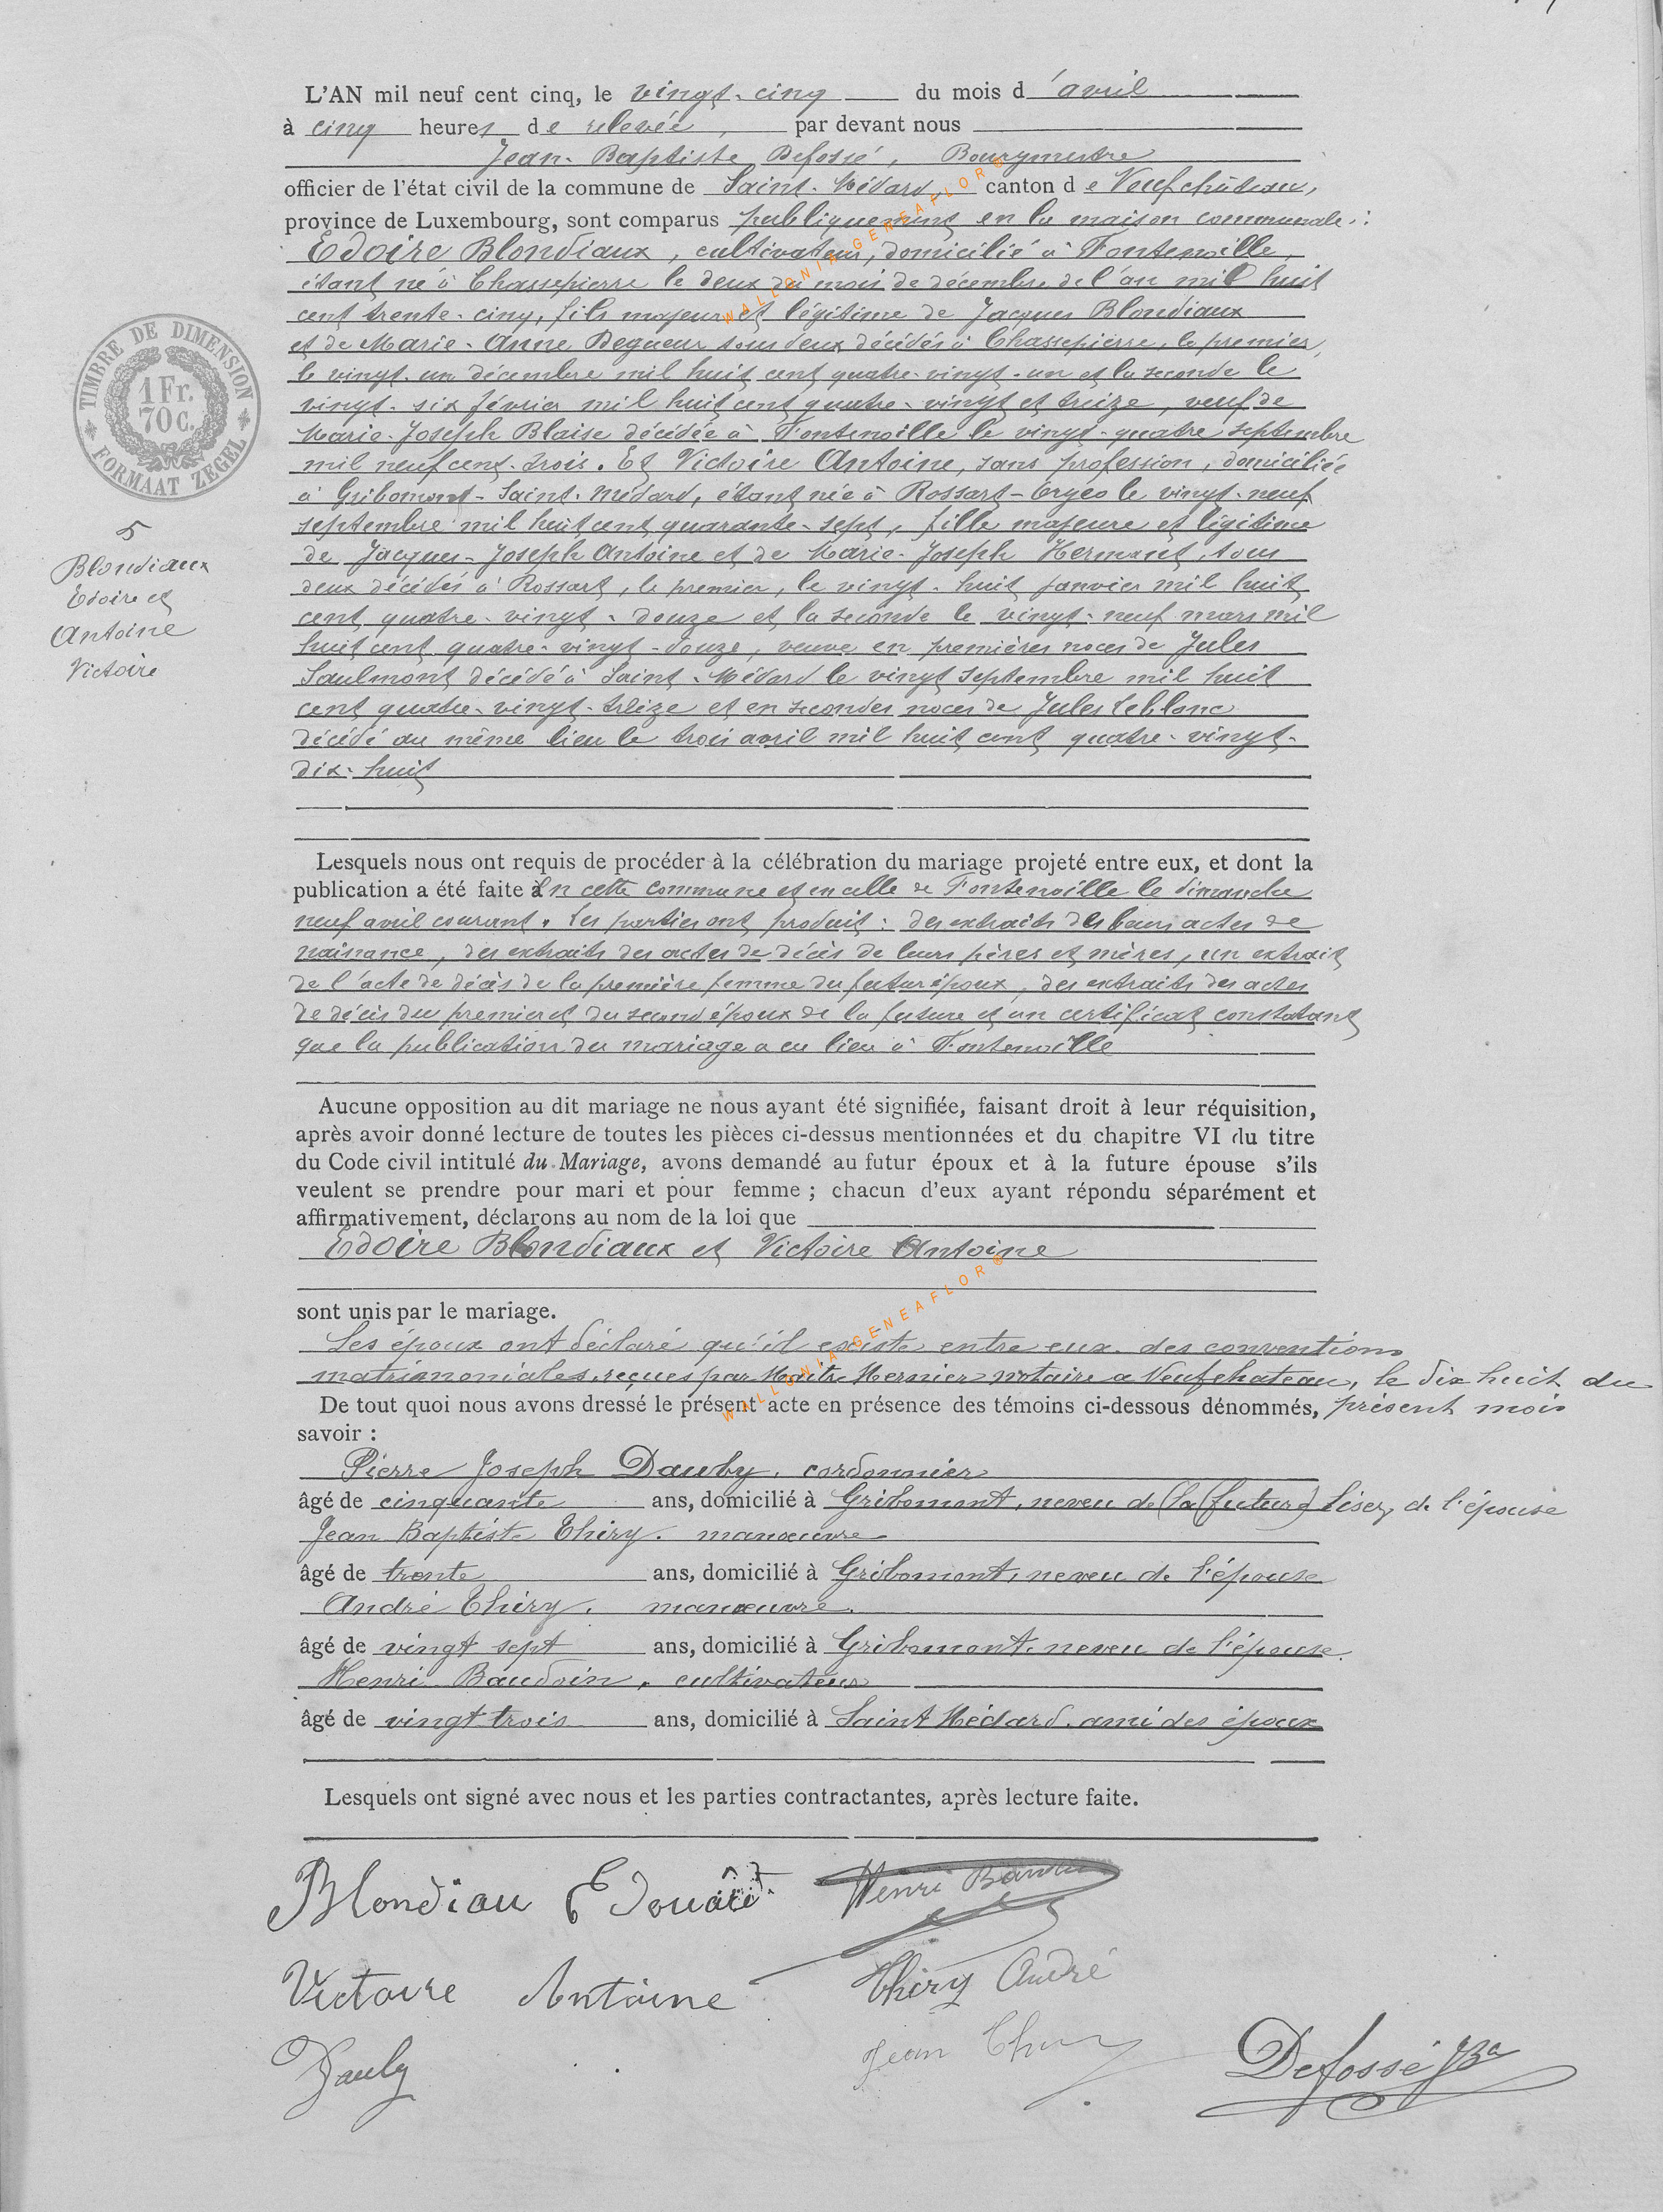 L'AN mil neuf cent cinq, le vingt-cinq du mois d'avril
à cinq heures de relevée, par devant nous
Jean-Baptiste Defossé, Bourgmestre
officier de l'état civil de la commune de Saint-Médard canton de Neufchâteau,
province de Luxembourg, sont comparus publiquement en la maison communale :
Edoire Blondiaux, cultivateur, domicilié à Fontenoille,
étant né à Chassepierre le deux du mois de décembre de l'an mil huit
cent trente-cinq, fils majeur et légitime de Jacques Blondiaux
et de Marie-Anne Degueur tous deux décédés à Chassepierre, le premier,
le vingt-un décembre mil huit cent quatre-vingt-un et la seconde le
vingt-six février mil huit cent quatre-vingt et treize, veuf de
Marie-Joseph Blaise décédée à Fontenoille le vingt-quatre septembre
mil neuf cent-trois. Et Victoire Antoine, sans profession, domiciliée
à Gribomont-Saint-Médard, étant née à Rossart-Orgeo le vingt-neuf
septembre mil huit cent quarante-sept, fille majeure et légitime
de Jacques-Joseph Antoine et de Marie-Joseph Hermant, tous
deux décédés à Rossart, le premier, le vingt-huit janvier mil huit
cent quatre-vingt-douze et la seconde le vingt-neuf mars mil
huit cent quatre-vingt-douze, veuve en premières noces de Jules
Saulmont décédé à Saint-Médard le vingt septembre mil huit
cent quatre-vingt-treize et en secondes noces de Jules Leblanc
décédé au même lieu le trois avril mil huit cent quatre-vingt-
dix-huit
TIMBRE DE DIMENSION
1 Fr.
70 c.
FORMAAT ZEGEL
5
Blondiaux
Edoire et
Antoine
Victoire
Lesquels nous ont requis de procéder à la célébration du mariage projeté entre eux, et dont la
publication a été faite en cette commune et en celle de Fontenoille le dimanche
neuf avril courant. Les parties ont produit : des extraits de leurs actes de
naissance, des extraits des actes de décès de leurs pères et mères, un extrait
de l'acte de décès de la première femme du futur époux, des extraits des actes
de décès du premier et du second époux de la future et un certificat constatant
que la publication du mariage a eu lieu à Fontenoille
Aucune opposition au dit mariage ne nous ayant été signifiée, faisant droit à leur réquisition,
après avoir donné lecture de toutes les pièces ci-dessus mentionnées et du chapitre VI du titre
du Code civil intitulé du Mariage, avons demandé au futur époux et à la future épouse s'ils
veulent se prendre pour mari et pour femme ; chacun d'eux ayant répondu séparément et
affirmativement, déclarons au nom de la loi que
Edoire Blondiaux et Victoire Antoine
sont unis par le mariage.
Les époux ont déclaré qu'il existe entre eux des conventions
matrimoniales reçues par Maître Mernier notaire a Neufchateau, le dix huit du
présent mois
De tout quoi nous avons dressé le présent acte en présence des témoins ci-dessous dénommés,
savoir :
Pierre Joseph Dauby, cordonnier
âgé de cinquante ans, domicilié à Gribomont, neveu de (la future) lisez de l'épouse
Jean Baptiste Thiry, manœuvre
âgé de trente ans, domicilié à Gribomont, neveu de l'épouse
André Thiry, manœuvre.
âgé de vingt sept ans, domicilié à Gribomont, neveu de l'épouse.
Henri Baudoin, cultivateur
âgé de vingt trois ans, domicilié à Saint Médard, ami des époux
Lesquels ont signé avec nous et les parties contractantes, après lecture faite.
Blondiau Edouard
Henri Baudoin
Victoire Antoine
Thiry André
Dauby
Jean Thiry
Defossé JBte
WALLONIA GENEAFLOR ®
WALLONIA GENEAFLOR ®